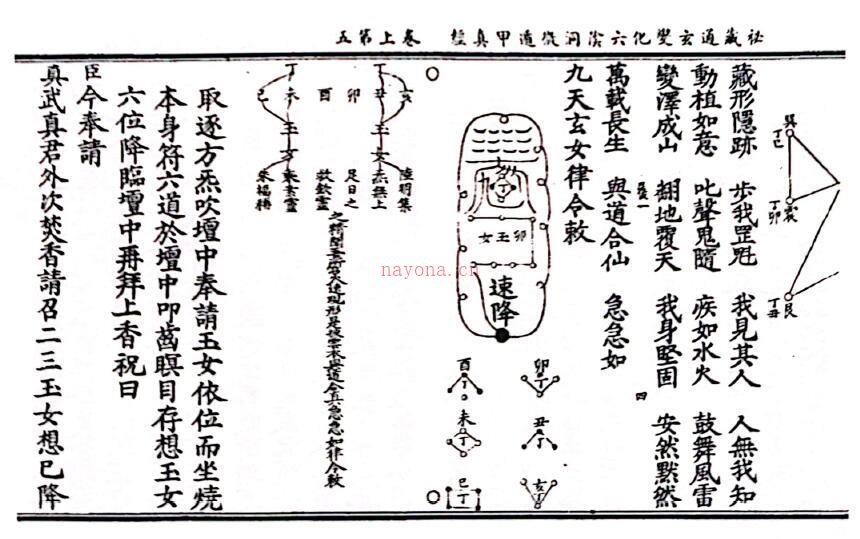 秘藏通玄變化六陰洞微遁甲真經 卷上第五
巽
丁巳
震
丁卯
艮
丁丑
藏形隱跡 步我罡魁 我見其人 人無我知
動植如意 叱聲鬼隨 疾如水火 鼓舞風雷
變澤成山 翻地覆天 我身堅固 安然默然
萬載長生 與道合仙 急急如
四
九天玄女律令敕
丁
女玉卯
速降
卯
丁
丑
丁
亥
丁
酉
丁
未
丁
巳
丁
亥
丁
丑
玉
女
卯
酉
丁
未
玉
女
巳
陸明集
足日之
取逐方炁吹壇中奉請玉女依位而坐燒
本身符六道於壇中叩齒瞑目存想玉女
六位降臨壇中再拜上香祝曰
臣今奉請
真武真君外次焚香請召二三玉女想已降
nayona.cn